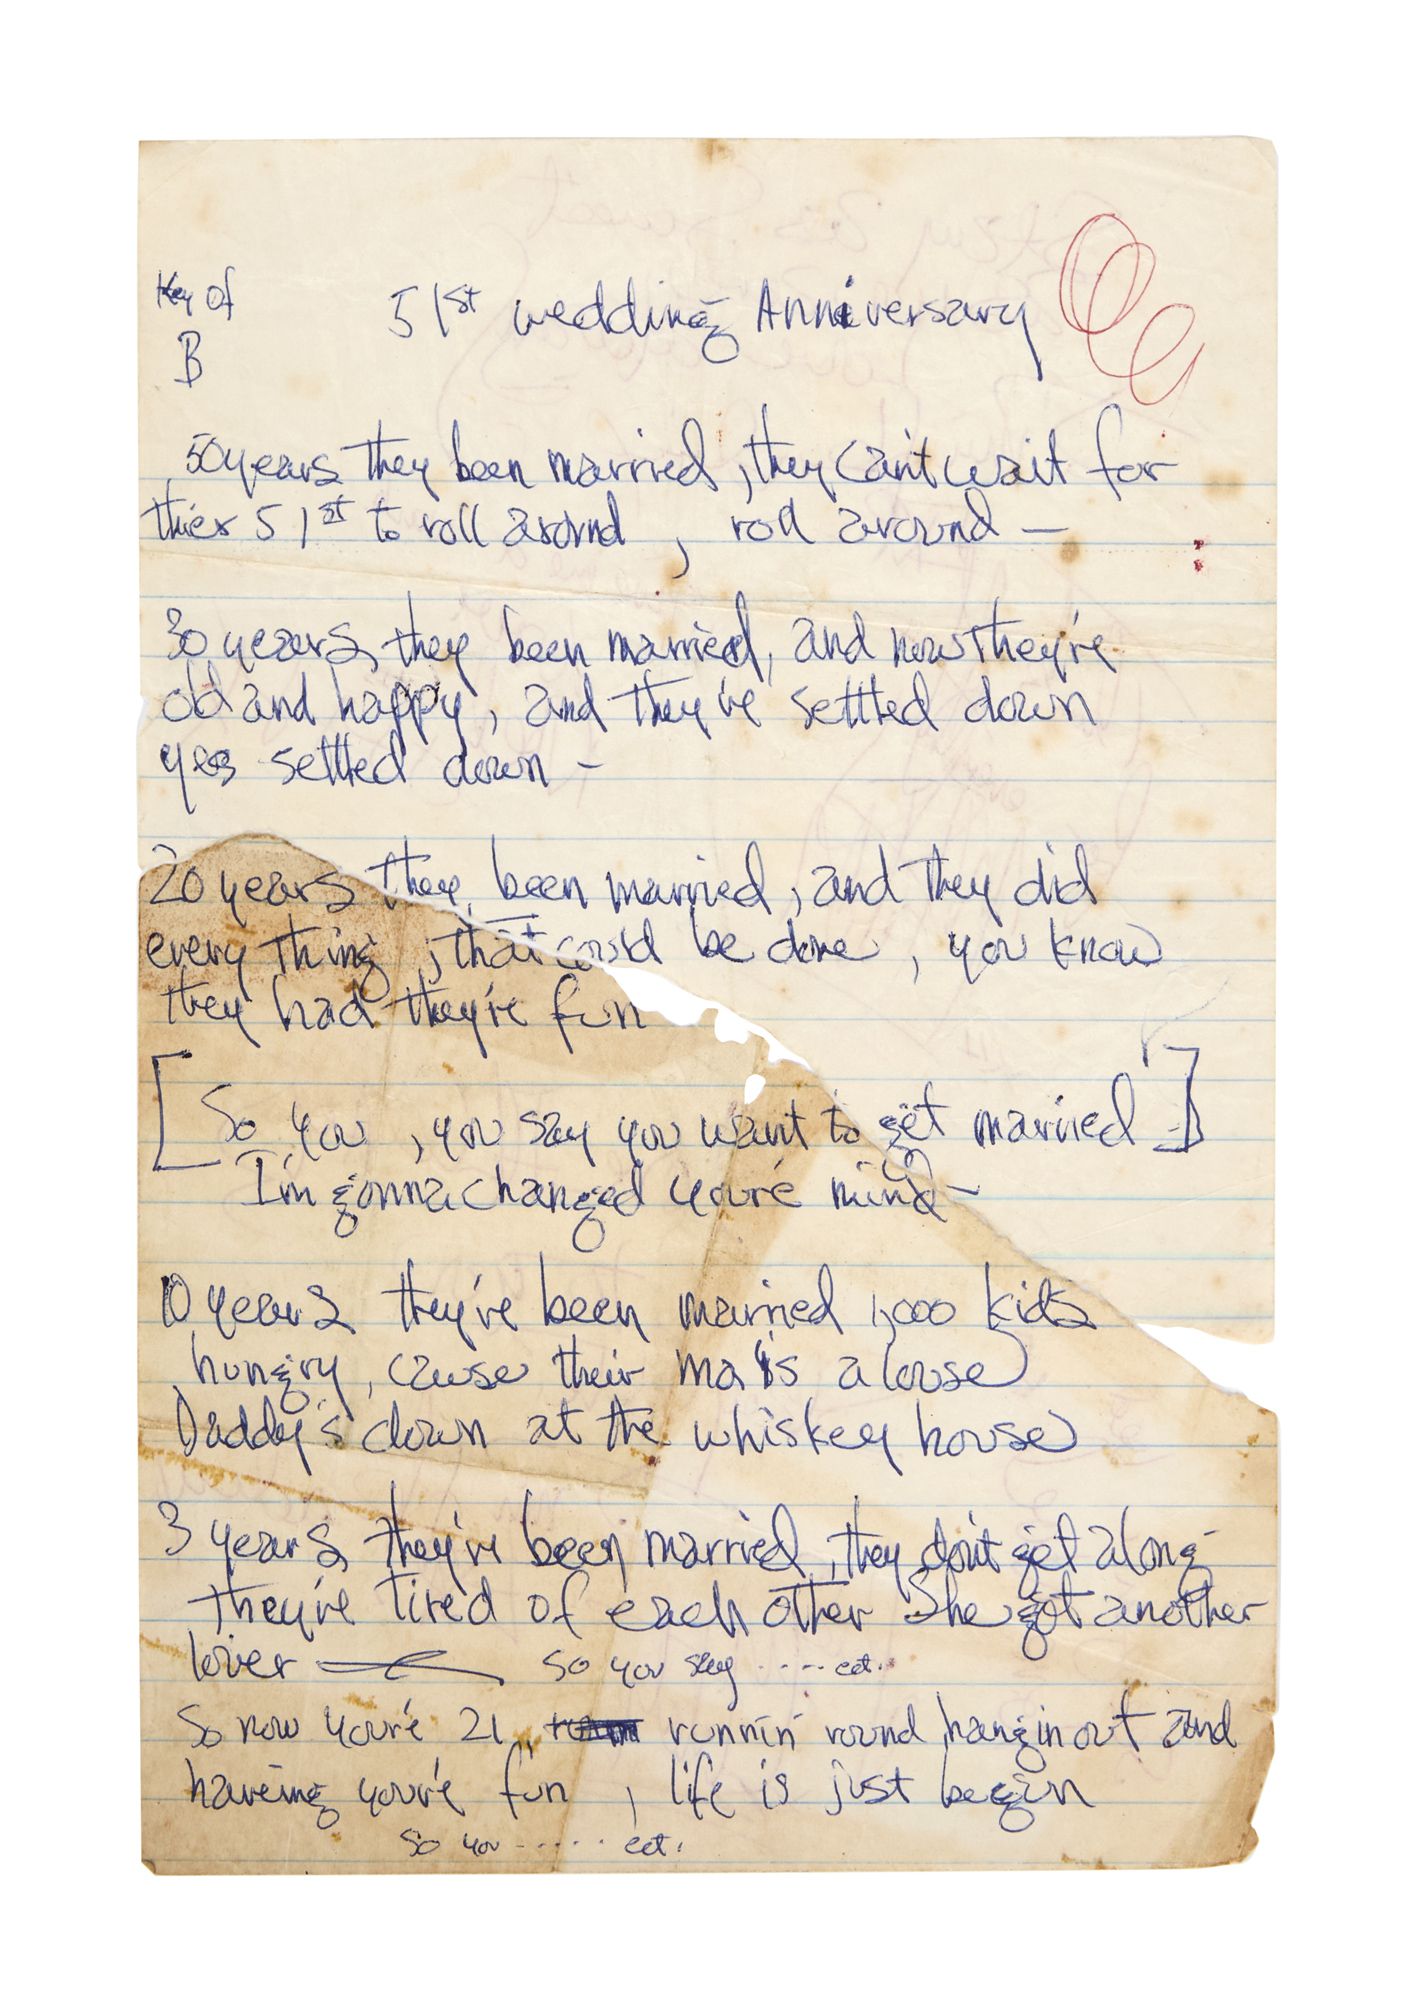 Key of
B
51st wedding Anniversary
50 years they been married, they can't wait for
thier 51st to roll around, roll around —
30 years they been married, and now they're
old and happy, and they've settled down
yes settled down —
20 years they been married, and they did
everything, that could be done, you know
they had they're fun
[So you, you say you want to get married]
I'm gonna changed you're mind —
10 years they've been married 1,000 kids
hungry, cause their ma is a louse
Daddy's down at the whiskey house
3 years they've been married, they don't get along
They're tired of each other She got another
lover — so you say ..... ect.
So now you're 21, runnin' round hangin out and
haveing you're fun, life is just begin
So you ...... ect.